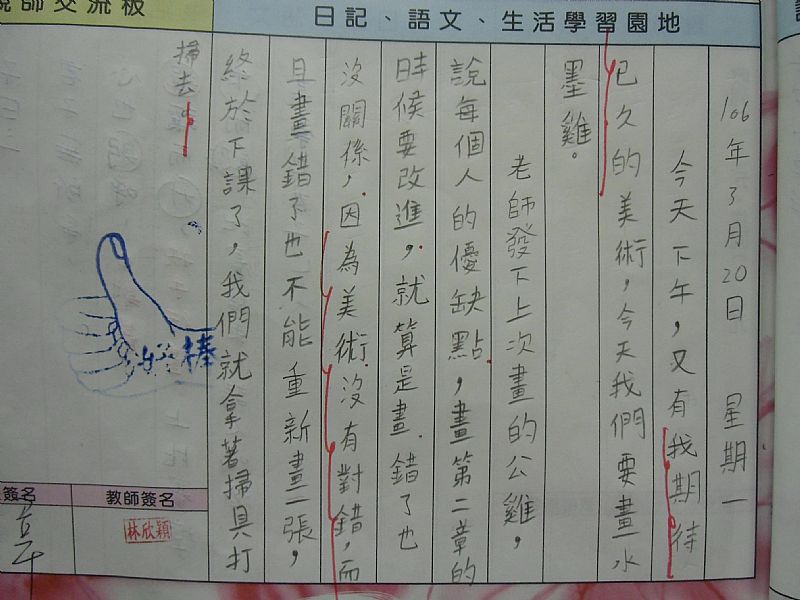 親師交流板
日記、語文、生活學習園地
106年3月20日 星期一
今天下午，又有我期待
已久的美術，今天我們要畫水
墨雞。
老師發下上次畫的公雞，
說每個人的優缺點，畫第二章的
時候要改進，就算是畫錯了也
沒關係，因為美術沒有對錯，而
且畫錯了也不能重新畫一張，
終於下課了，我們就拿著掃具打
掃去。
好棒
簽名
教師簽名
林欣穎